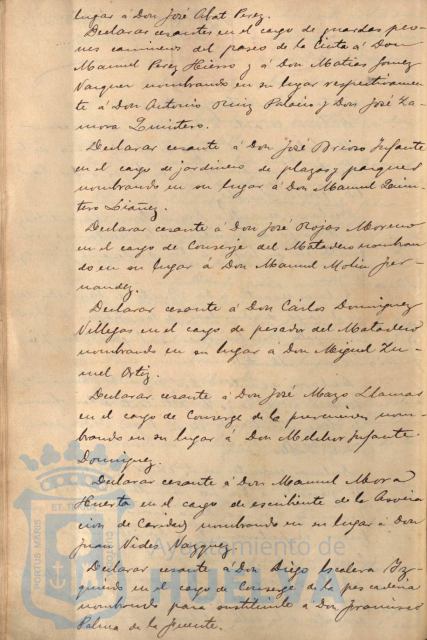 lugar á Don José Abat Perez.
Declarar cesantes en el cargo de guardas peo-
nes camineros del paseo de la Cinta á Don
Manuel Perez Hierro y á Don Matias Gomez
Vazquez nombrando en su lugar respectivamen-
te á Don Antonio Ruiz Palacio y Don José Za-
mora Quintero.
Declarar cesante á Don José Brioso Infante
en el cargo de jardinero de plazas y parques
nombrando en su lugar á Don Manuel Quin-
tero Liañez.
Declarar cesante á Don José Rojas Moreno
en el cargo de Conserje del Matadero nombran
do en su lugar á Don Manuel Molin Fer-
nandez.
Declarar cesante á Don Cárlos Dominguez
Villegas en el cargo de pesador del Matadero
nombrando en su lugar á Don Miguel Zu-
mel Ortiz.
Declarar cesante á Don José Mazo Llamas
en el cargo de Conserge de la nom-
brando en su lugar á Don Melchor Infante
Dominguez.
Declarar cesante á Don Manuel Mora
Huerta en el cargo de escribiente de la Asocia
cion de Caridad nombrando en su lugar á Don
Juan Vides Vazquez.
Declarar cesante á Don Diego Escalera Yz-
quierdo en el cargo de Conserge de la pescadería
nombrando para sustituirle á Don Francisco
Palma de la Fuente.
PORTUS MARIS ET TERRAE CUSTODIA
Ayuntamiento de
HUELVA